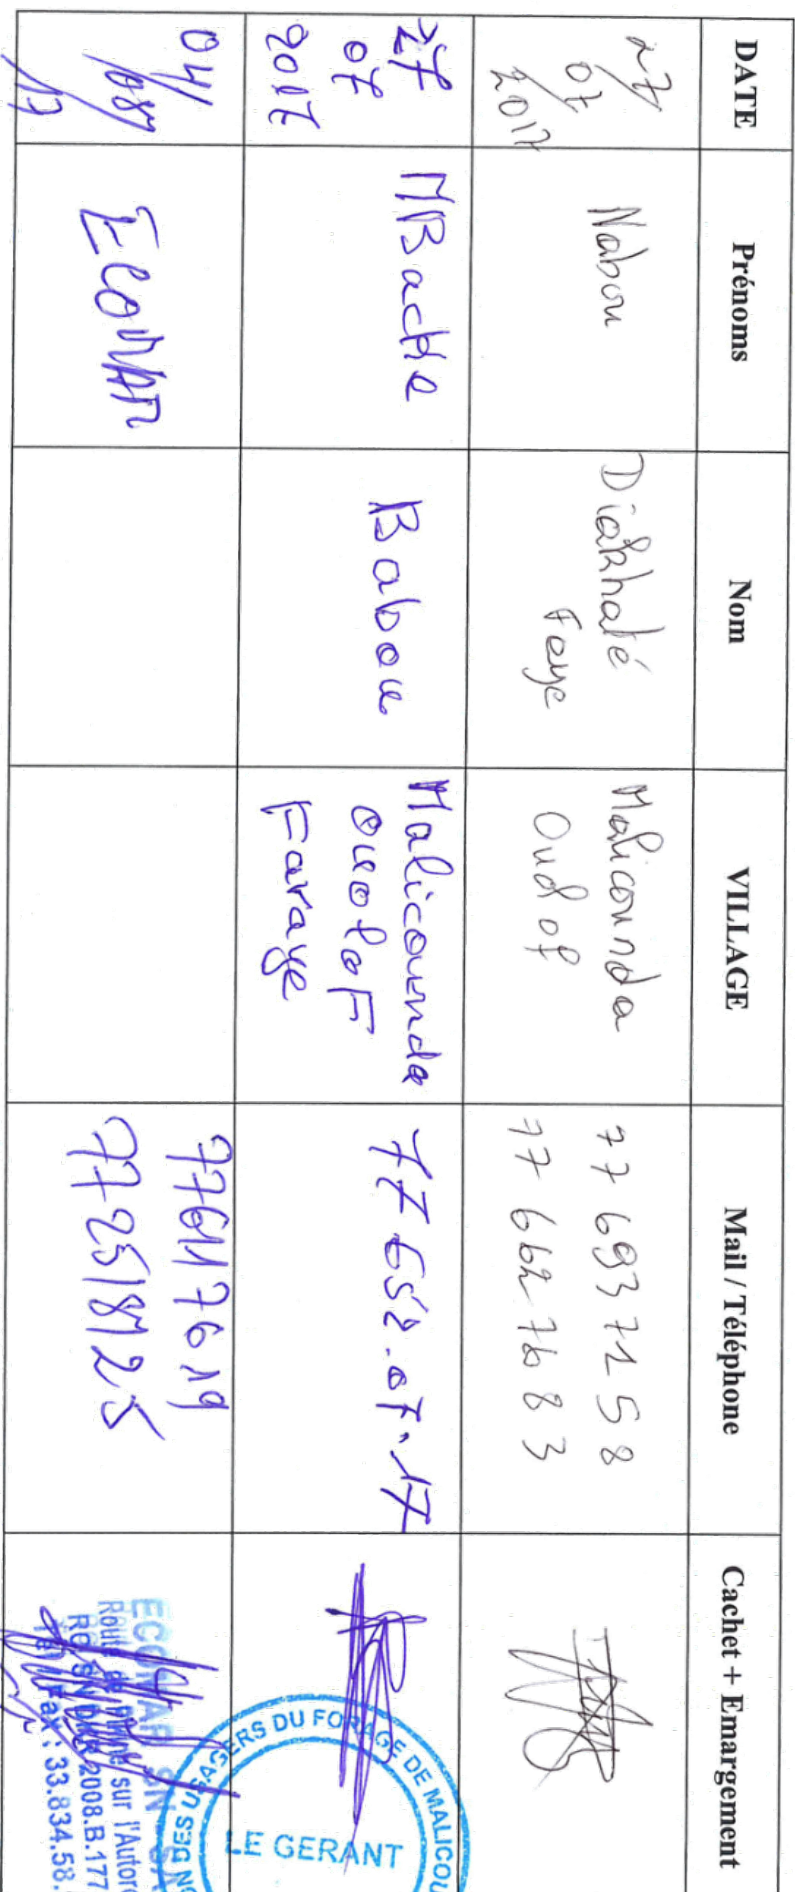 DATE
Prénoms
Nom
VILLAGE
Mail / Téléphone
Cachet + Emargement
27/
07/
2017
Nabou
Diakhaté
Faye
Malicounda
Oulof
77 693 71 58
77 662 76 83
27
07
2017
MBacke
Babou
Malicounda
ouolof
Faraye
77 652.07.17
DES USAGERS DU FORAGE DE MALICOU
LE GERANT
04/
08/
17
ECOMAR
776117619
772518125
ECOMAR SN SA
sur l'Autoro
2008.B.177
Fax : 33.834.58.